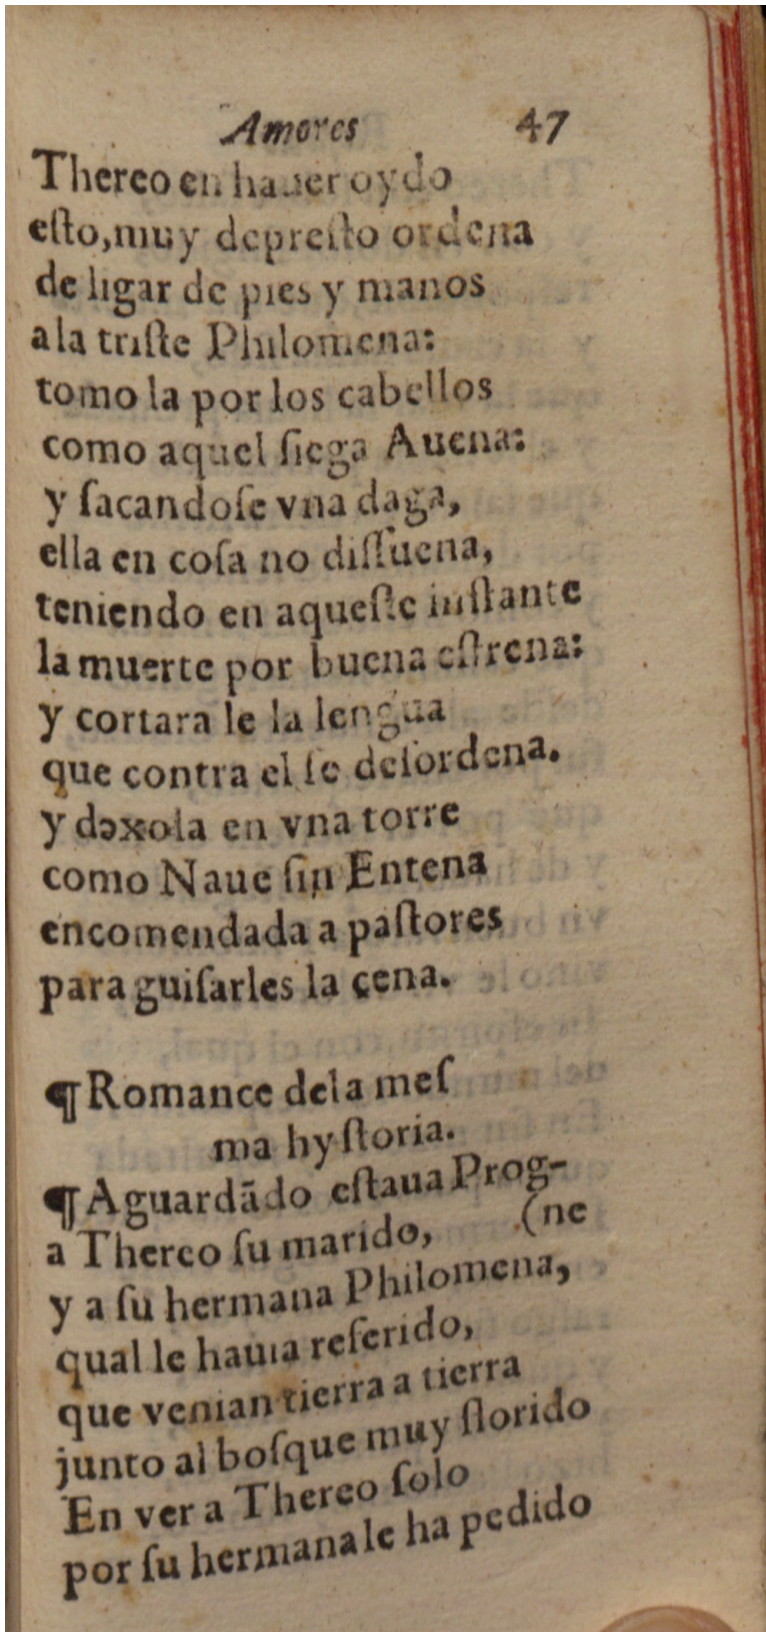 Amores 47
Thereo en hauer oydo
eſto, muy depreſto ordena
de ligar de pies y manos
a la triſte Philomena:
tomo la por los cabellos
como aquel ſiega Auena:
y ſacandoſe vna daga,
ella en coſa no diſſuena,
teniendo en aqueſte inſtante
la muerte por buena eſtrena:
y cortara le la lengua
que contra el ſe deſordena.
y dexola en vna torre
como Naue ſin Entena
encomendada a paſtores
para guiſarles la çena.
¶ Romance dela meſ
ma hyſtoria.
¶ Aguardādo eſtaua Prog-
a Thereo ſu marido, (ne
y a ſu hermana Philomena,
qual le hauia referido,
que venian tierra a tierra
junto al boſque muy florido
En ver a Thereo ſolo
por ſu hermana le ha pedido